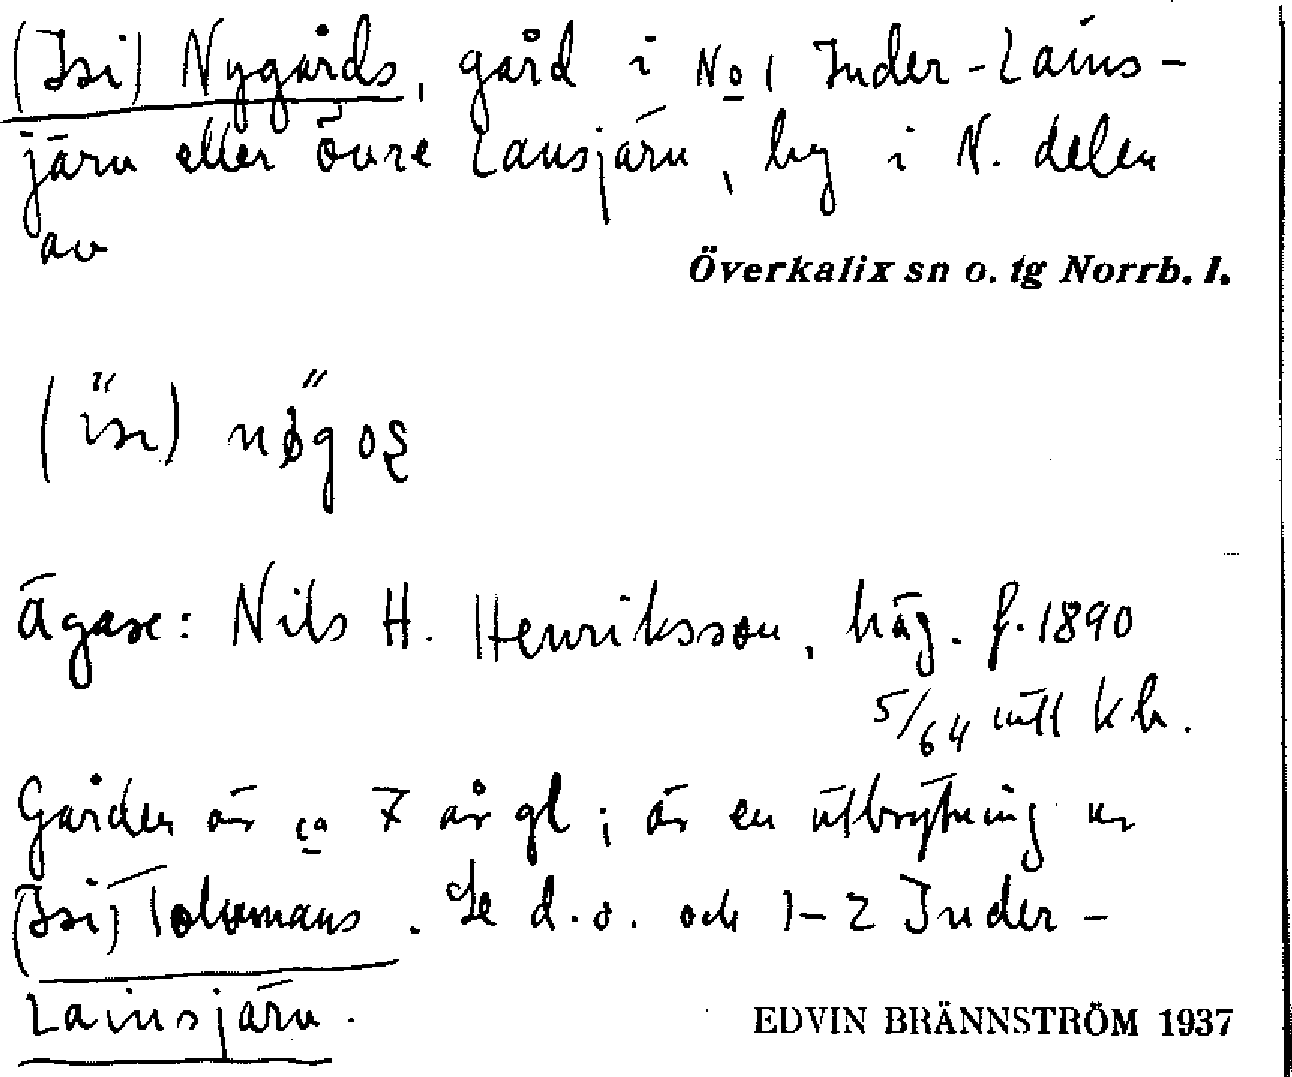 (Isi) Nygårds, gård i No 1 Inder-Lains-
järv eller övre Lansjärv, by i N. delen
av
Överkalix sn o. tg Norrb. l.
(isi) nøgoṣ
Ägare: Nils H. Henriksson, häg. f. 1890
5/64 mtl kr.
Gården är ca 7 år gl; är en utbrytning ur
(Isi) Tolkmans. Se d.o. och 1-2 Inder-
Lainsjärv.
EDVIN BRÄNNSTRÖM 1937